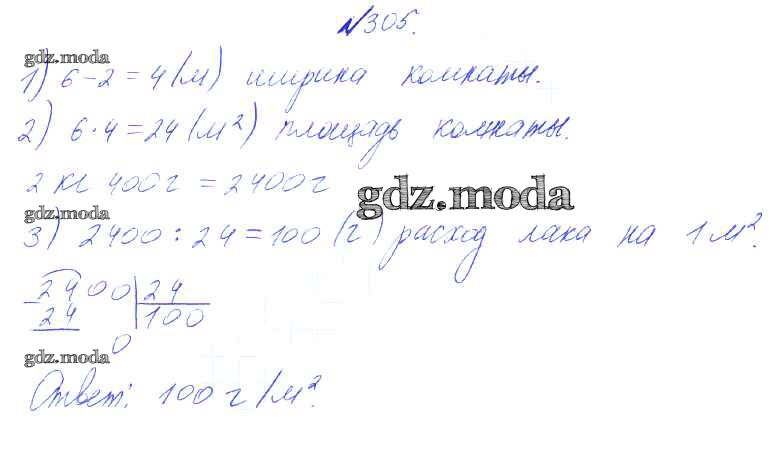 №305.
gdz.moda
1) 6-2=4 (м) ширина комнаты.
2) 6·4=24 (м²) площадь комнаты.
2 кг 400г = 2400г
gdz.moda
gdz.moda
3) 2400:24=100 (г) расход лака на 1м².
2400 24
24 100
0
gdz.moda
Ответ: 100 г/м².